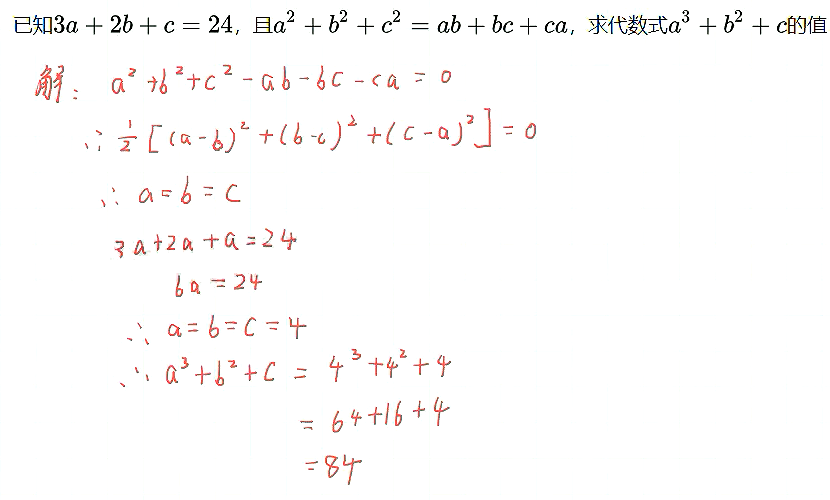 已知3a + 2b + c = 24，且a² + b² + c² = ab + bc + ca，求代数式a³ + b² + c的值
解：a² + b² + c² - ab - bc - ca = 0
∴ 1/2 [(a-b)² + (b-c)² + (c-a)²] = 0
∴ a = b = c
3a + 2a + a = 24
6a = 24
∴ a = b = c = 4
∴ a³ + b² + c = 4³ + 4² + 4
= 64 + 16 + 4
= 84